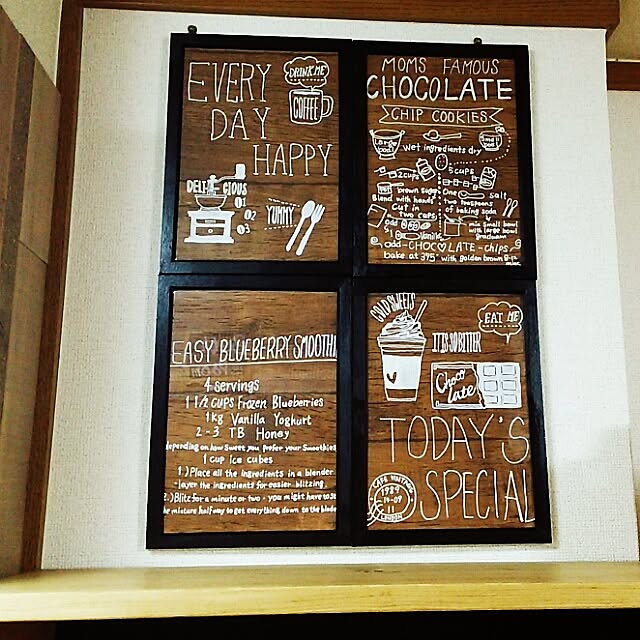 EVERY
DAY
HAPPY
DRINK ME
COFFEE
DELI CIOUS
01
02
03
YUMMY
MOMS FAMOUS
CHOCOLATE
CHIP COOKIES
Large
Small
wet ingredients dry
2cups
3cups
brown sugar
Blend with hands
Cut in
two caps
One
salt
two teaspoons
of baking soda
in small bowl
with large bowl
Vanilla
odd-CHOC LATE-chips
bake at 375° with golden brown 8-12
EASY BLUEBERRY SMOOTHI
4 servings
1 1/2 cups Frozen Blueberries
1kg Vanilla Yoghurt
2-3 TB Honey
depending on how Sweet you prefer your Smoothies
1 cup ice cubes
1.) Place all the ingredients in a blender
-layer the ingredients for easier blitzing.
2.) Blitz for a minute or two - you might have to
mixture halfway to get everything down to the blade
COLD SWEETS
EAT ME
IT IS SO BITTER
Choco
late
TODAY'S
SPECIAL
CAFE VINTAGE
1989
14-09
11
LONDON